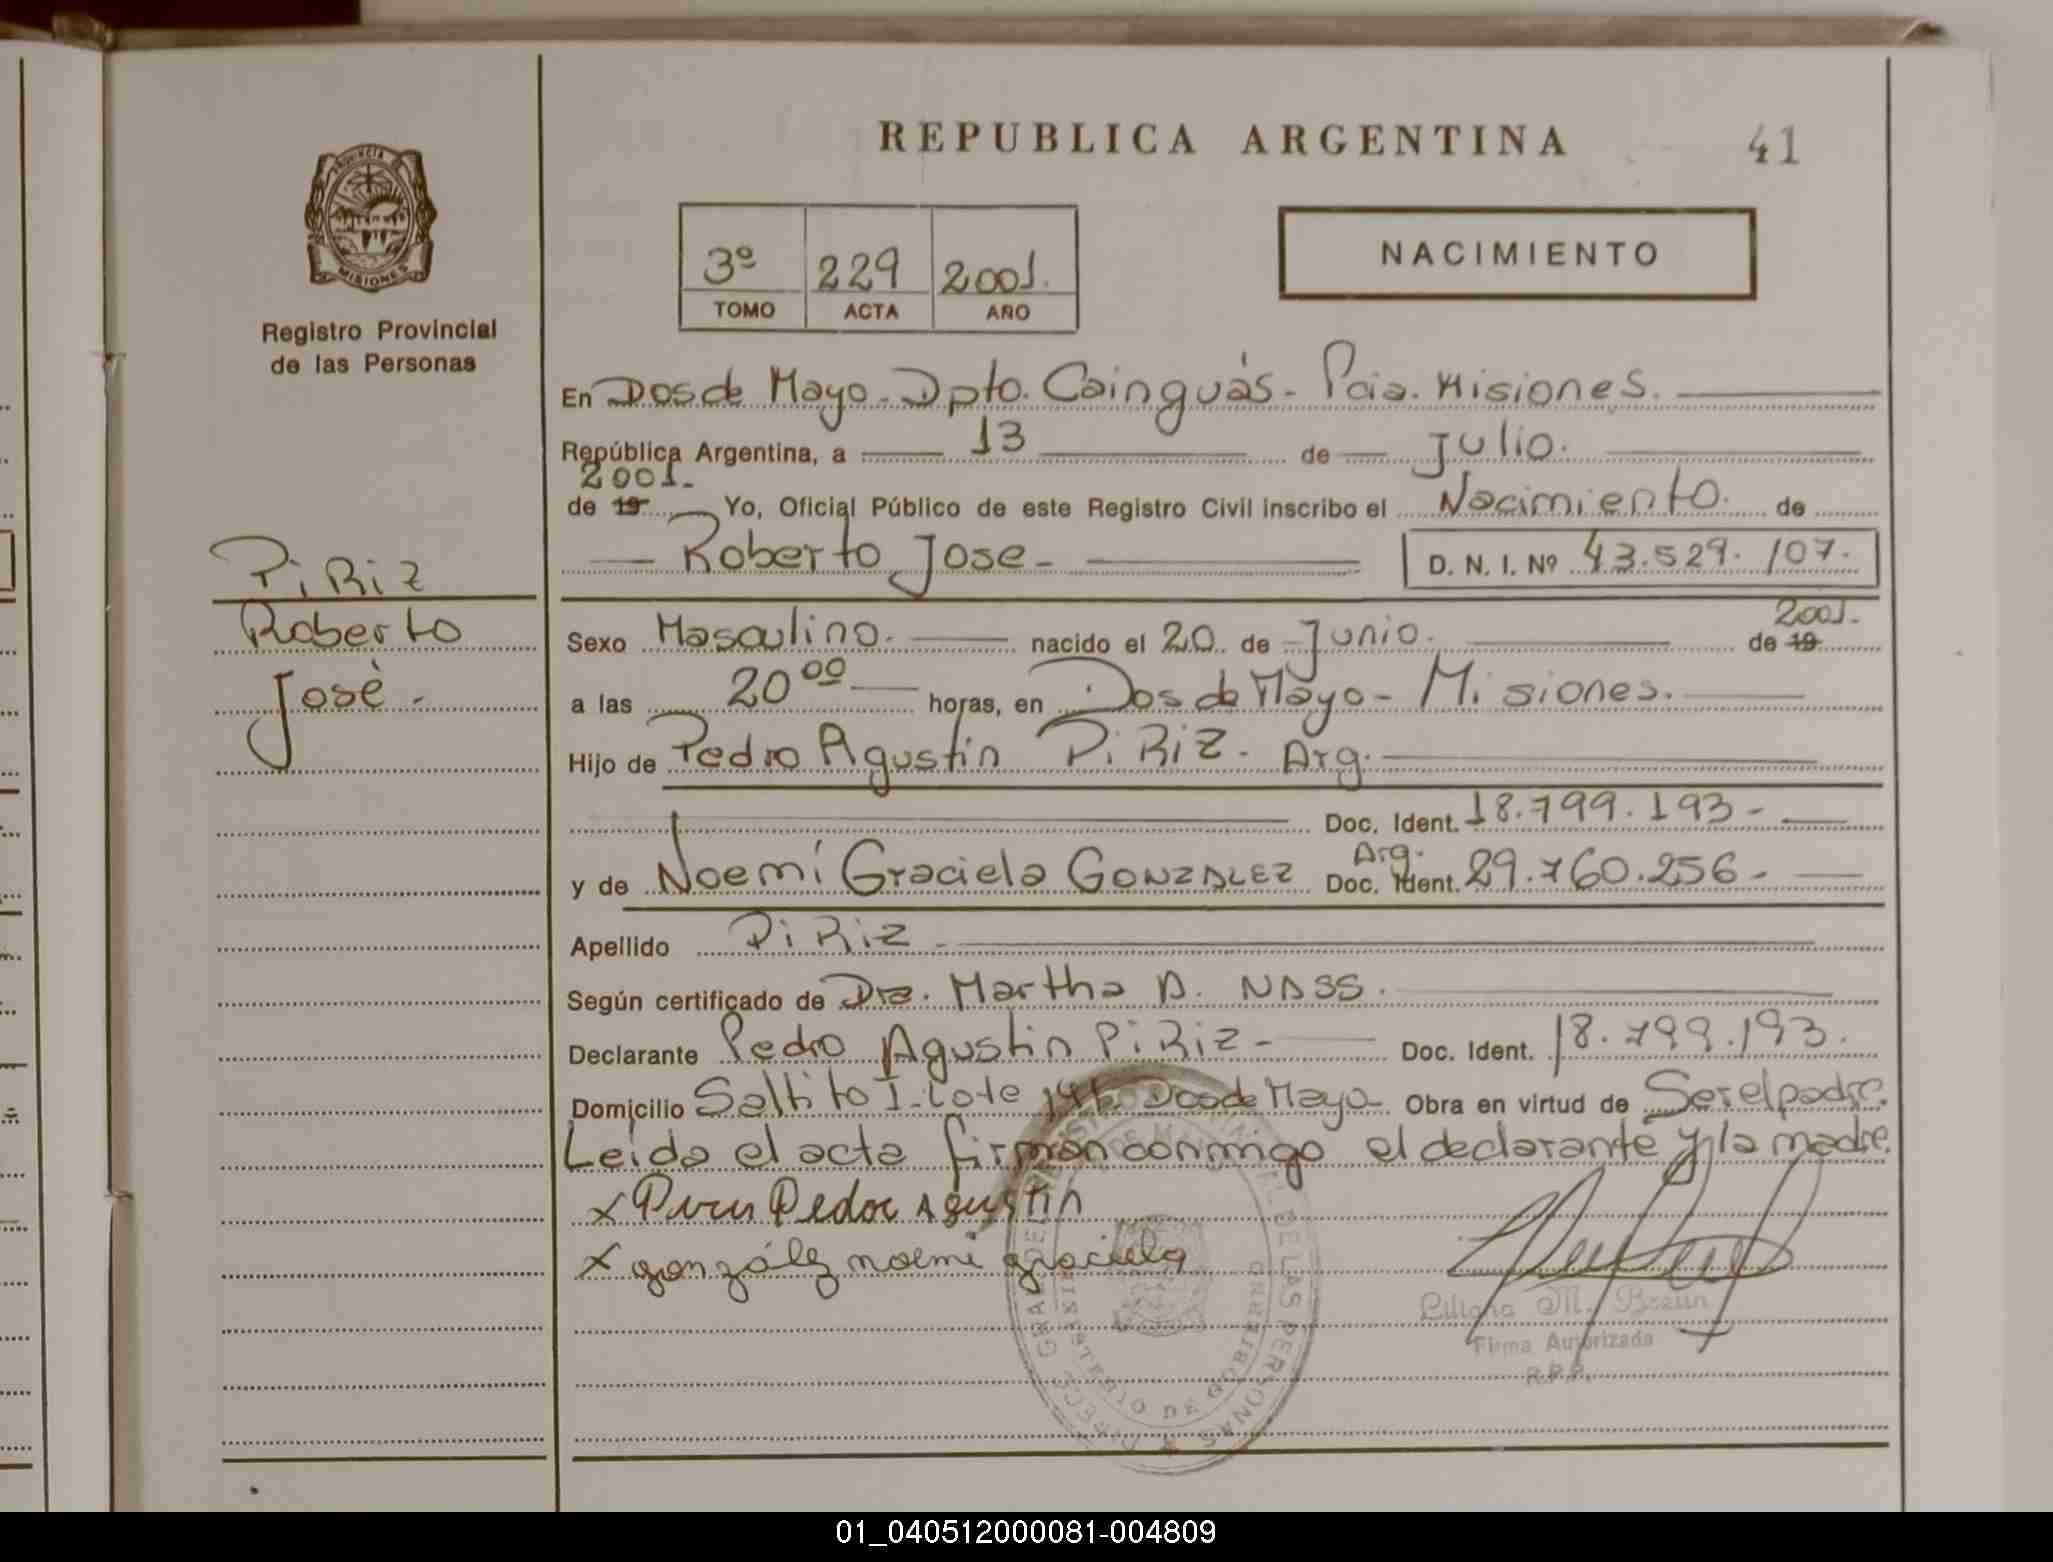 REPUBLICA ARGENTINA
41
PROVINCIA DE
MISIONES
Registro Provincial
de las Personas
3º 229 2001.
TOMO ACTA AÑO
NACIMIENTO
En Dos de Mayo - Dpto. Cainguás - Pcia. Misiones.
República Argentina, a 13 de Julio.
2001.-
de 19 Yo, Oficial Público de este Registro Civil inscribo el Nacimiento. de
Roberto Jose - D. N. I. Nº 43.529.107.
PiRiz
Roberto
Josè.-
2001.-
Sexo Masculino. nacido el 20 de Junio. de 19
a las 20 00 horas, en Dos de Mayo - Misiones.
Hijo de Pedro Agustin PiRiZ - Arg.
Doc. Ident. 18.799.193 -
Arg.
y de Noemí Graciela GONZALEZ Doc. Ident. 29.760.256 -
Apellido PiRiz -
Según certificado de Dra. Martha A. NASS.
Declarante Pedro Agustin PiRiz - Doc. Ident. 18.799.193.
Domicilio Saltito I - Lote Dos de Mayo Obra en virtud de Ser el padre.
Leida el acta firman conmigo el declarante y la madre.
x Agustin
x gonzález noemi graciela
Liliana M. Braun
Firma Autorizada
R.P.P.
DE LAS PERSONAS
MINISTERIO DE GOBIERNO
01_040512000081-004809